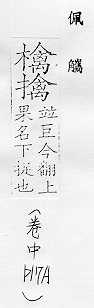 佩觿
檎擒
並巨今翻上
果名下捉也
(卷中P17A)